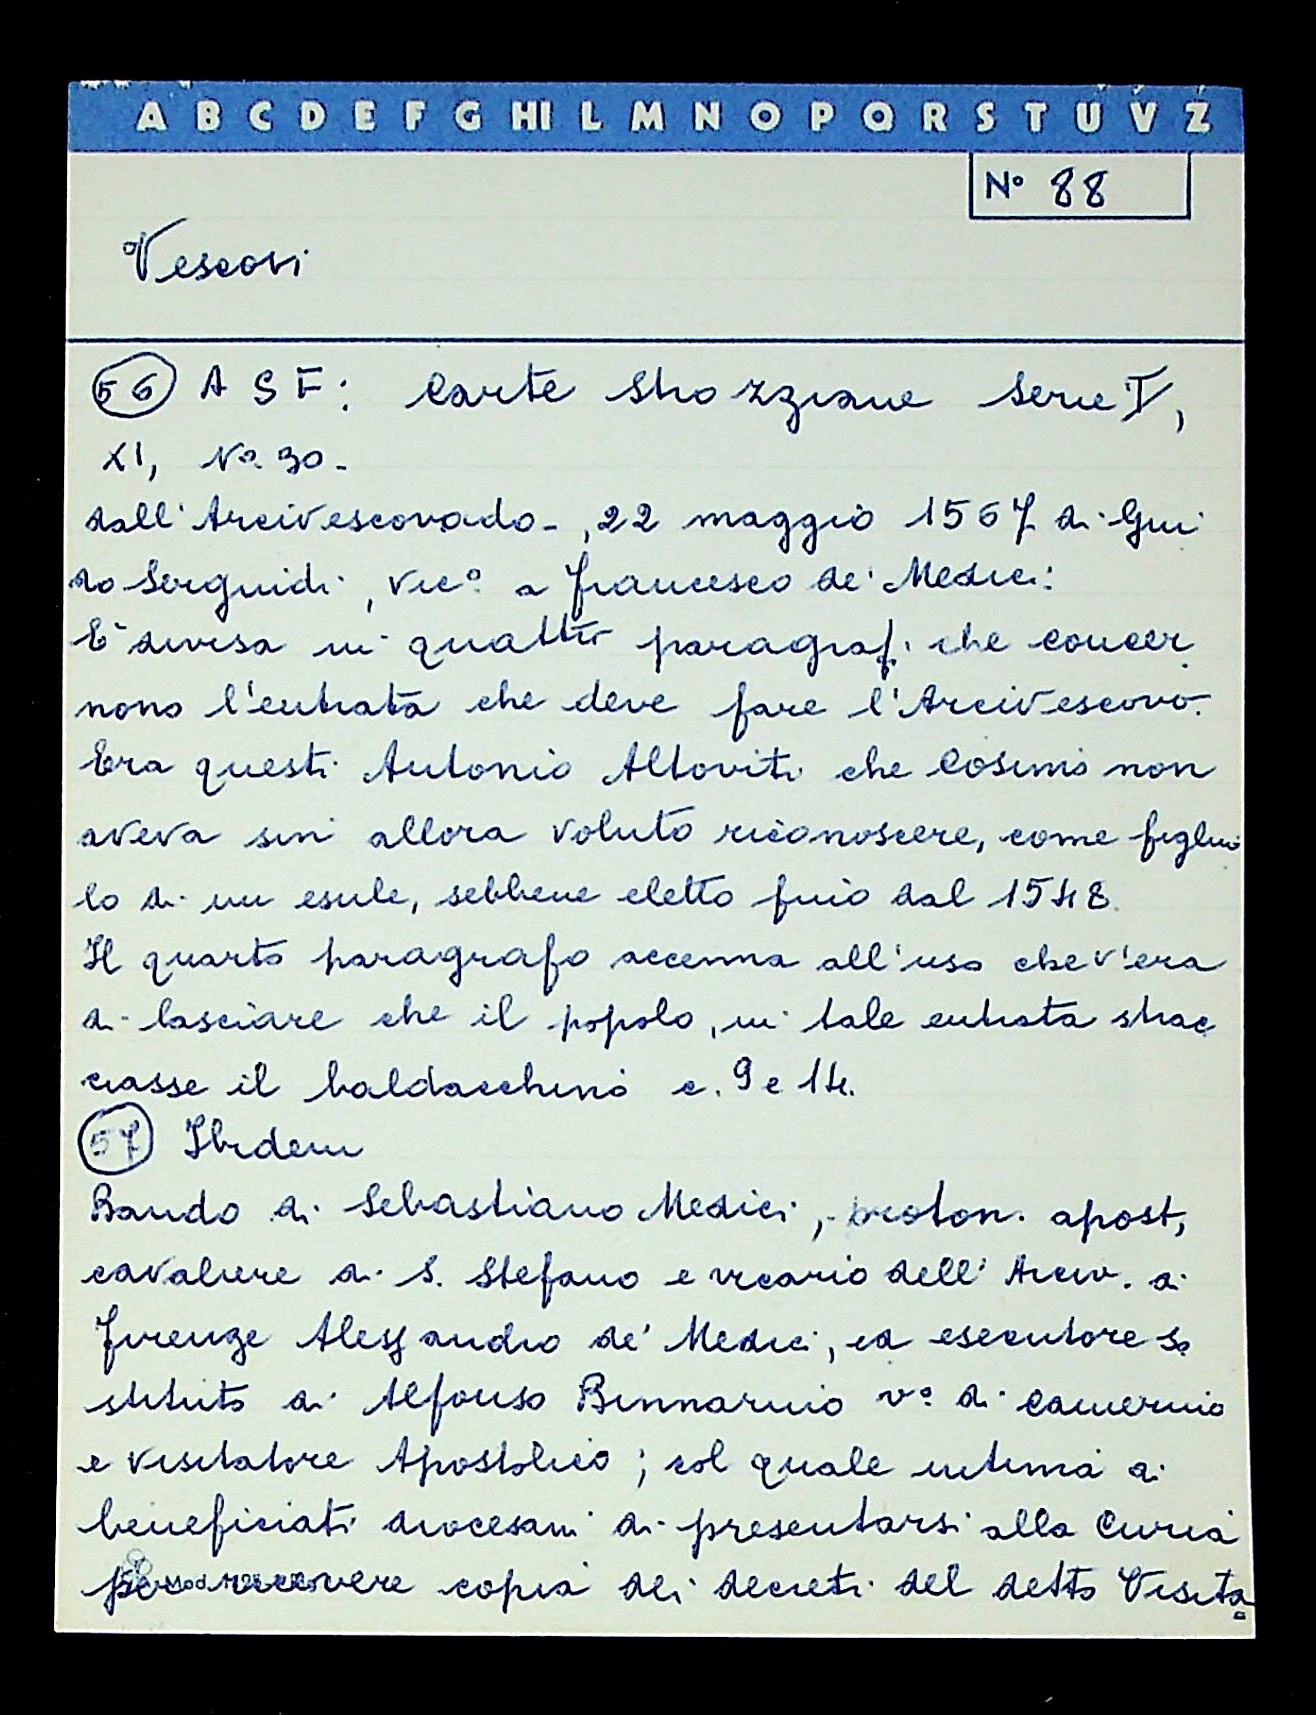 A B C D E F G HI L M N O P Q R S T U V Z
N° 88
Vescovi
56 A S F: Carte Strozziane Serie I,
XI, N° 30-
dall'Arcivescovado-, 22 maggio 1567 di Gui
do Serguidi, Vic° a Francesco de' Medici:
E' divisa in quattro paragrafi che concer
nono l'entrata che deve fare l'Arcivescovo.
Era questi Antonio Altoviti che Cosimo non
aveva sin allora voluto riconoscere, come figliuo
lo di un esule, sebbene eletto fino dal 1548.
Il quarto paragrafo accenna all'uso che v'era
di lasciare che il popolo, in tale entrata strac
ciasse il baldacchino c. 9 e 14.
57 Ibidem
Bando di Sebastiano Medici, proton. apost,
cavaliere di S. Stefano e vicario dell' Arciv. di
Firenze Alessandro de' Medici, ed esecutore so
stituto di Alfonso Binnarino v° di Camerino
e visitatore Apostolico; col quale intima ai
beneficiati diocesani di presentarsi alla Curia
per ricevere copia dei decreti del detto Visita